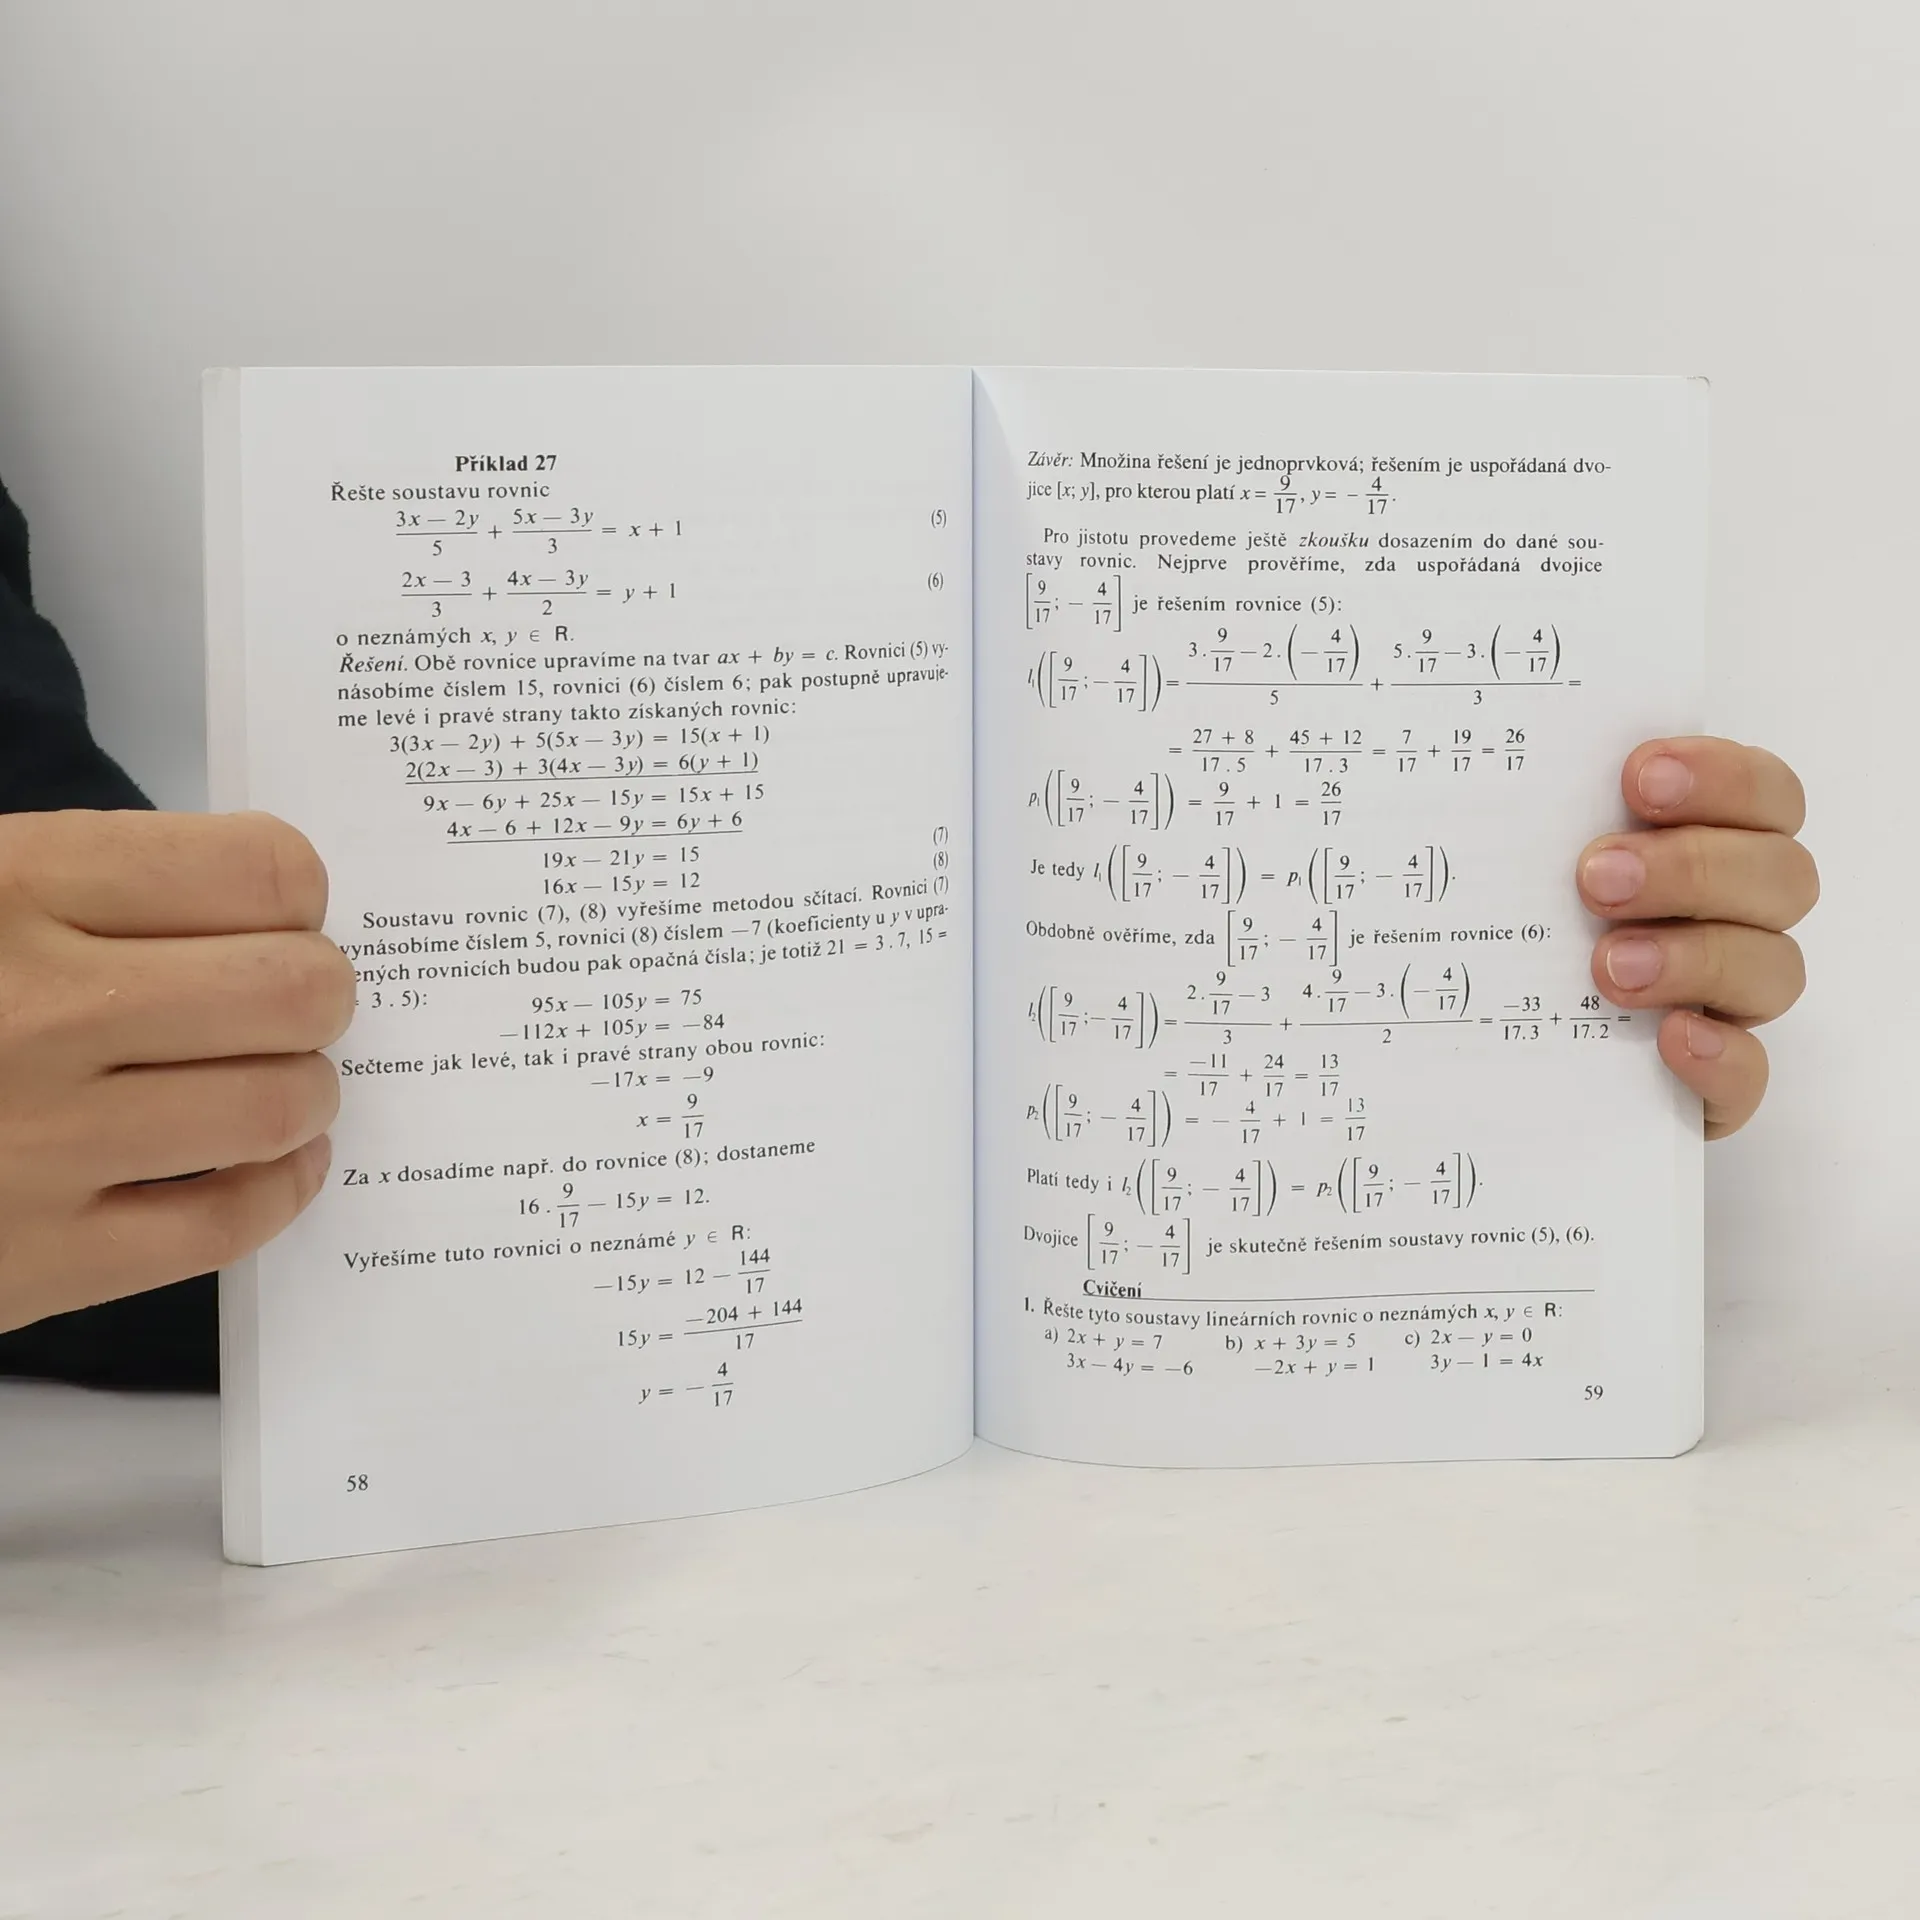 Příklad 27
Řešte soustavu rovnic
(3x — 2y)/5 + (5x — 3y)/3 = x + 1 (5)
(2x — 3)/3 + (4x — 3y)/2 = y + 1 (6)
o neznámých x, y ∈ R.
Řešení. Obě rovnice upravíme na tvar ax + by = c. Rovnici (5) vy-
násobíme číslem 15, rovnici (6) číslem 6; pak postupně upravuje-
me levé i pravé strany takto získaných rovnic:
3(3x — 2y) + 5(5x — 3y) = 15(x + 1)
2(2x — 3) + 3(4x — 3y) = 6(y + 1)
9x — 6y + 25x — 15y = 15x + 15
4x — 6 + 12x — 9y = 6y + 6
19x — 21y = 15 (7)
16x — 15y = 12 (8)
Soustavu rovnic (7), (8) vyřešíme metodou sčítací. Rovnici (7)
vynásobíme číslem 5, rovnici (8) číslem —7 (koeficienty u y v upra-
ených rovnicích budou pak opačná čísla; je totiž 21 = 3 . 7, 15 =
= 3 . 5):
95x — 105y = 75
—112x + 105y = —84
Sečteme jak levé, tak i pravé strany obou rovnic:
—17x = —9
x = 9/17
Za x dosadíme např. do rovnice (8); dostaneme
16 . 9/17 — 15y = 12.
Vyřešíme tuto rovnici o neznámé y ∈ R:
—15y = 12 — 144/17
15y = (—204 + 144)/17
y = — 4/17
58
Závěr: Množina řešení je jednoprvková; řešením je uspořádaná dvo-
jice [x; y], pro kterou platí x = 9/17, y = — 4/17.
Pro jistotu provedeme ještě zkoušku dosazením do dané sou-
stavy rovnic. Nejprve prověříme, zda uspořádaná dvojice
[9/17; — 4/17] je řešením rovnice (5):
l₁([9/17; — 4/17]) = (3 . 9/17 — 2 . (— 4/17))/5 + (5 . 9/17 — 3 . (— 4/17))/3 =
= (27 + 8)/(17 . 5) + (45 + 12)/(17 . 3) = 7/17 + 19/17 = 26/17
p₁([9/17; — 4/17]) = 9/17 + 1 = 26/17
Je tedy l₁([9/17; — 4/17]) = p₁([9/17; — 4/17]).
Obdobně ověříme, zda [9/17; — 4/17] je řešením rovnice (6):
l₂([9/17; — 4/17]) = (2 . 9/17 — 3)/3 + (4 . 9/17 — 3 . (— 4/17))/2 = —33/(17 . 3) + 48/(17 . 2) =
= —11/17 + 24/17 = 13/17
p₂([9/17; — 4/17]) = — 4/17 + 1 = 13/17
Platí tedy i l₂([9/17; — 4/17]) = p₂([9/17; — 4/17]).
Dvojice [9/17; — 4/17] je skutečně řešením soustavy rovnic (5), (6).
Cvičení
1. Řešte tyto soustavy lineárních rovnic o neznámých x, y ∈ R:
a) 2x + y = 7 b) x + 3y = 5 c) 2x — y = 0
3x — 4y = —6 —2x + y = 1 3y — 1 = 4x
59